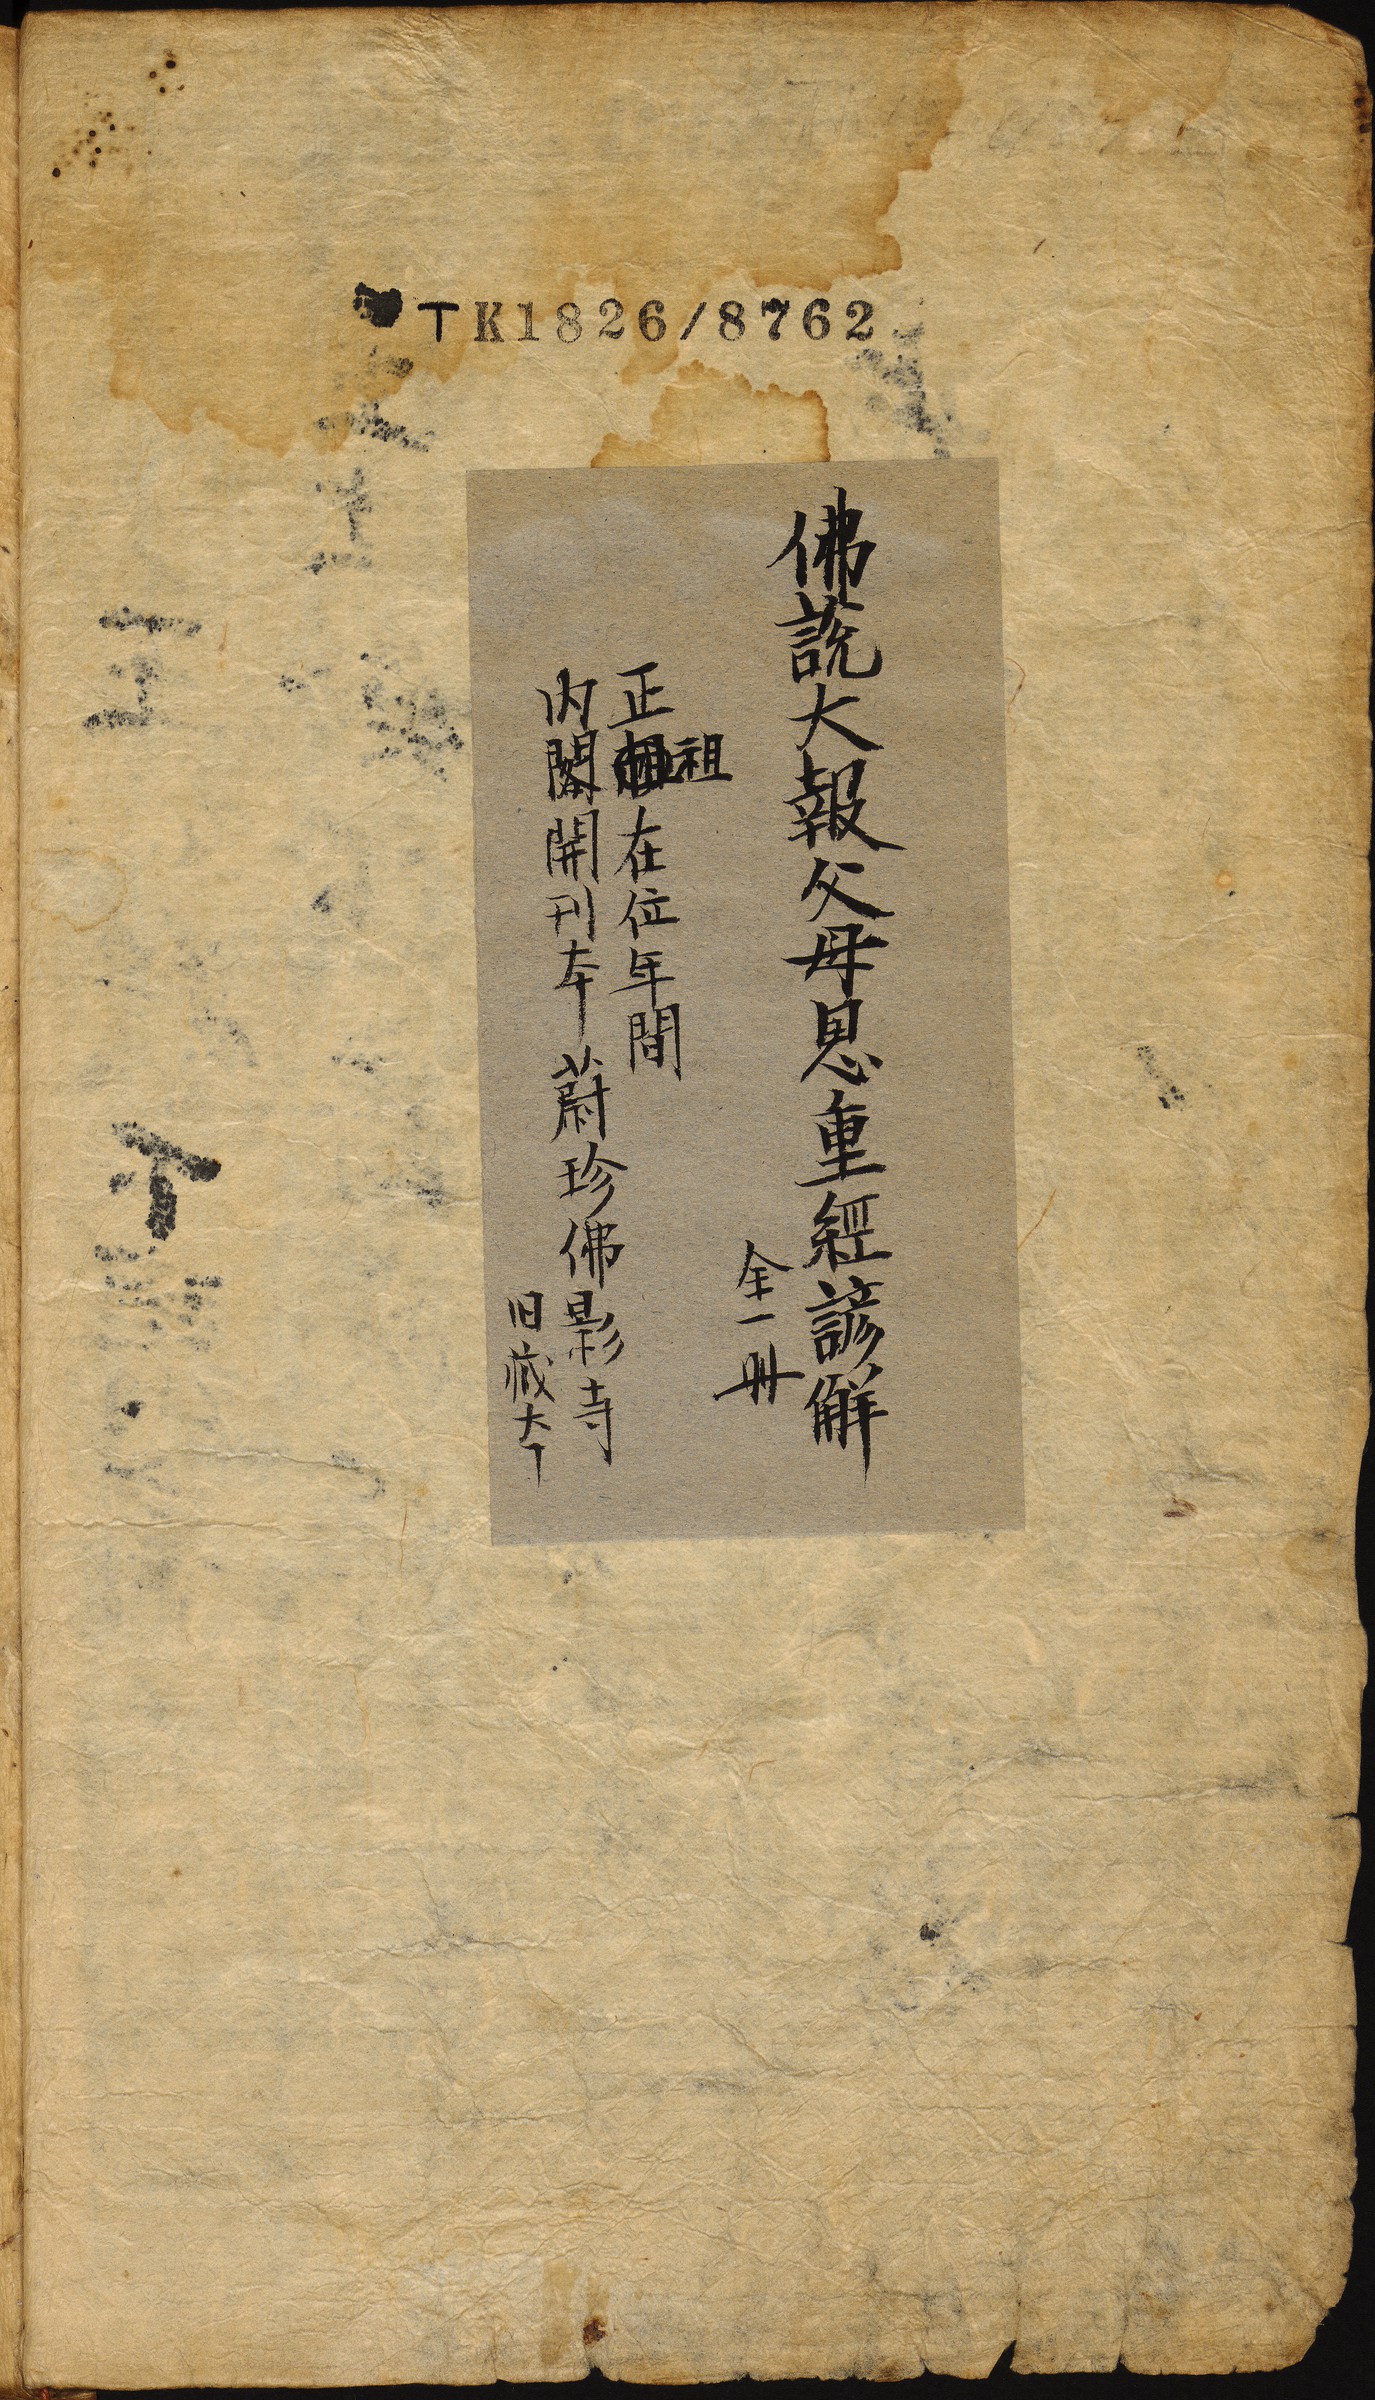 TK1826/8762
佛說大報父母恩重經諺解
全一冊
正祖在位年間
内閣開刊本 蔚珍佛影寺
旧藏本